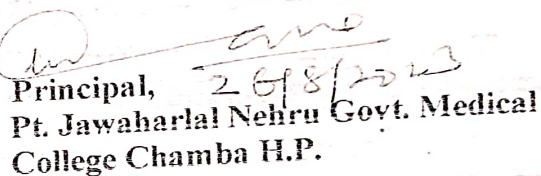 26/8/2023
Principal,
Pt. Jawaharlal Nehru Govt. Medical
College Chamba H.P.